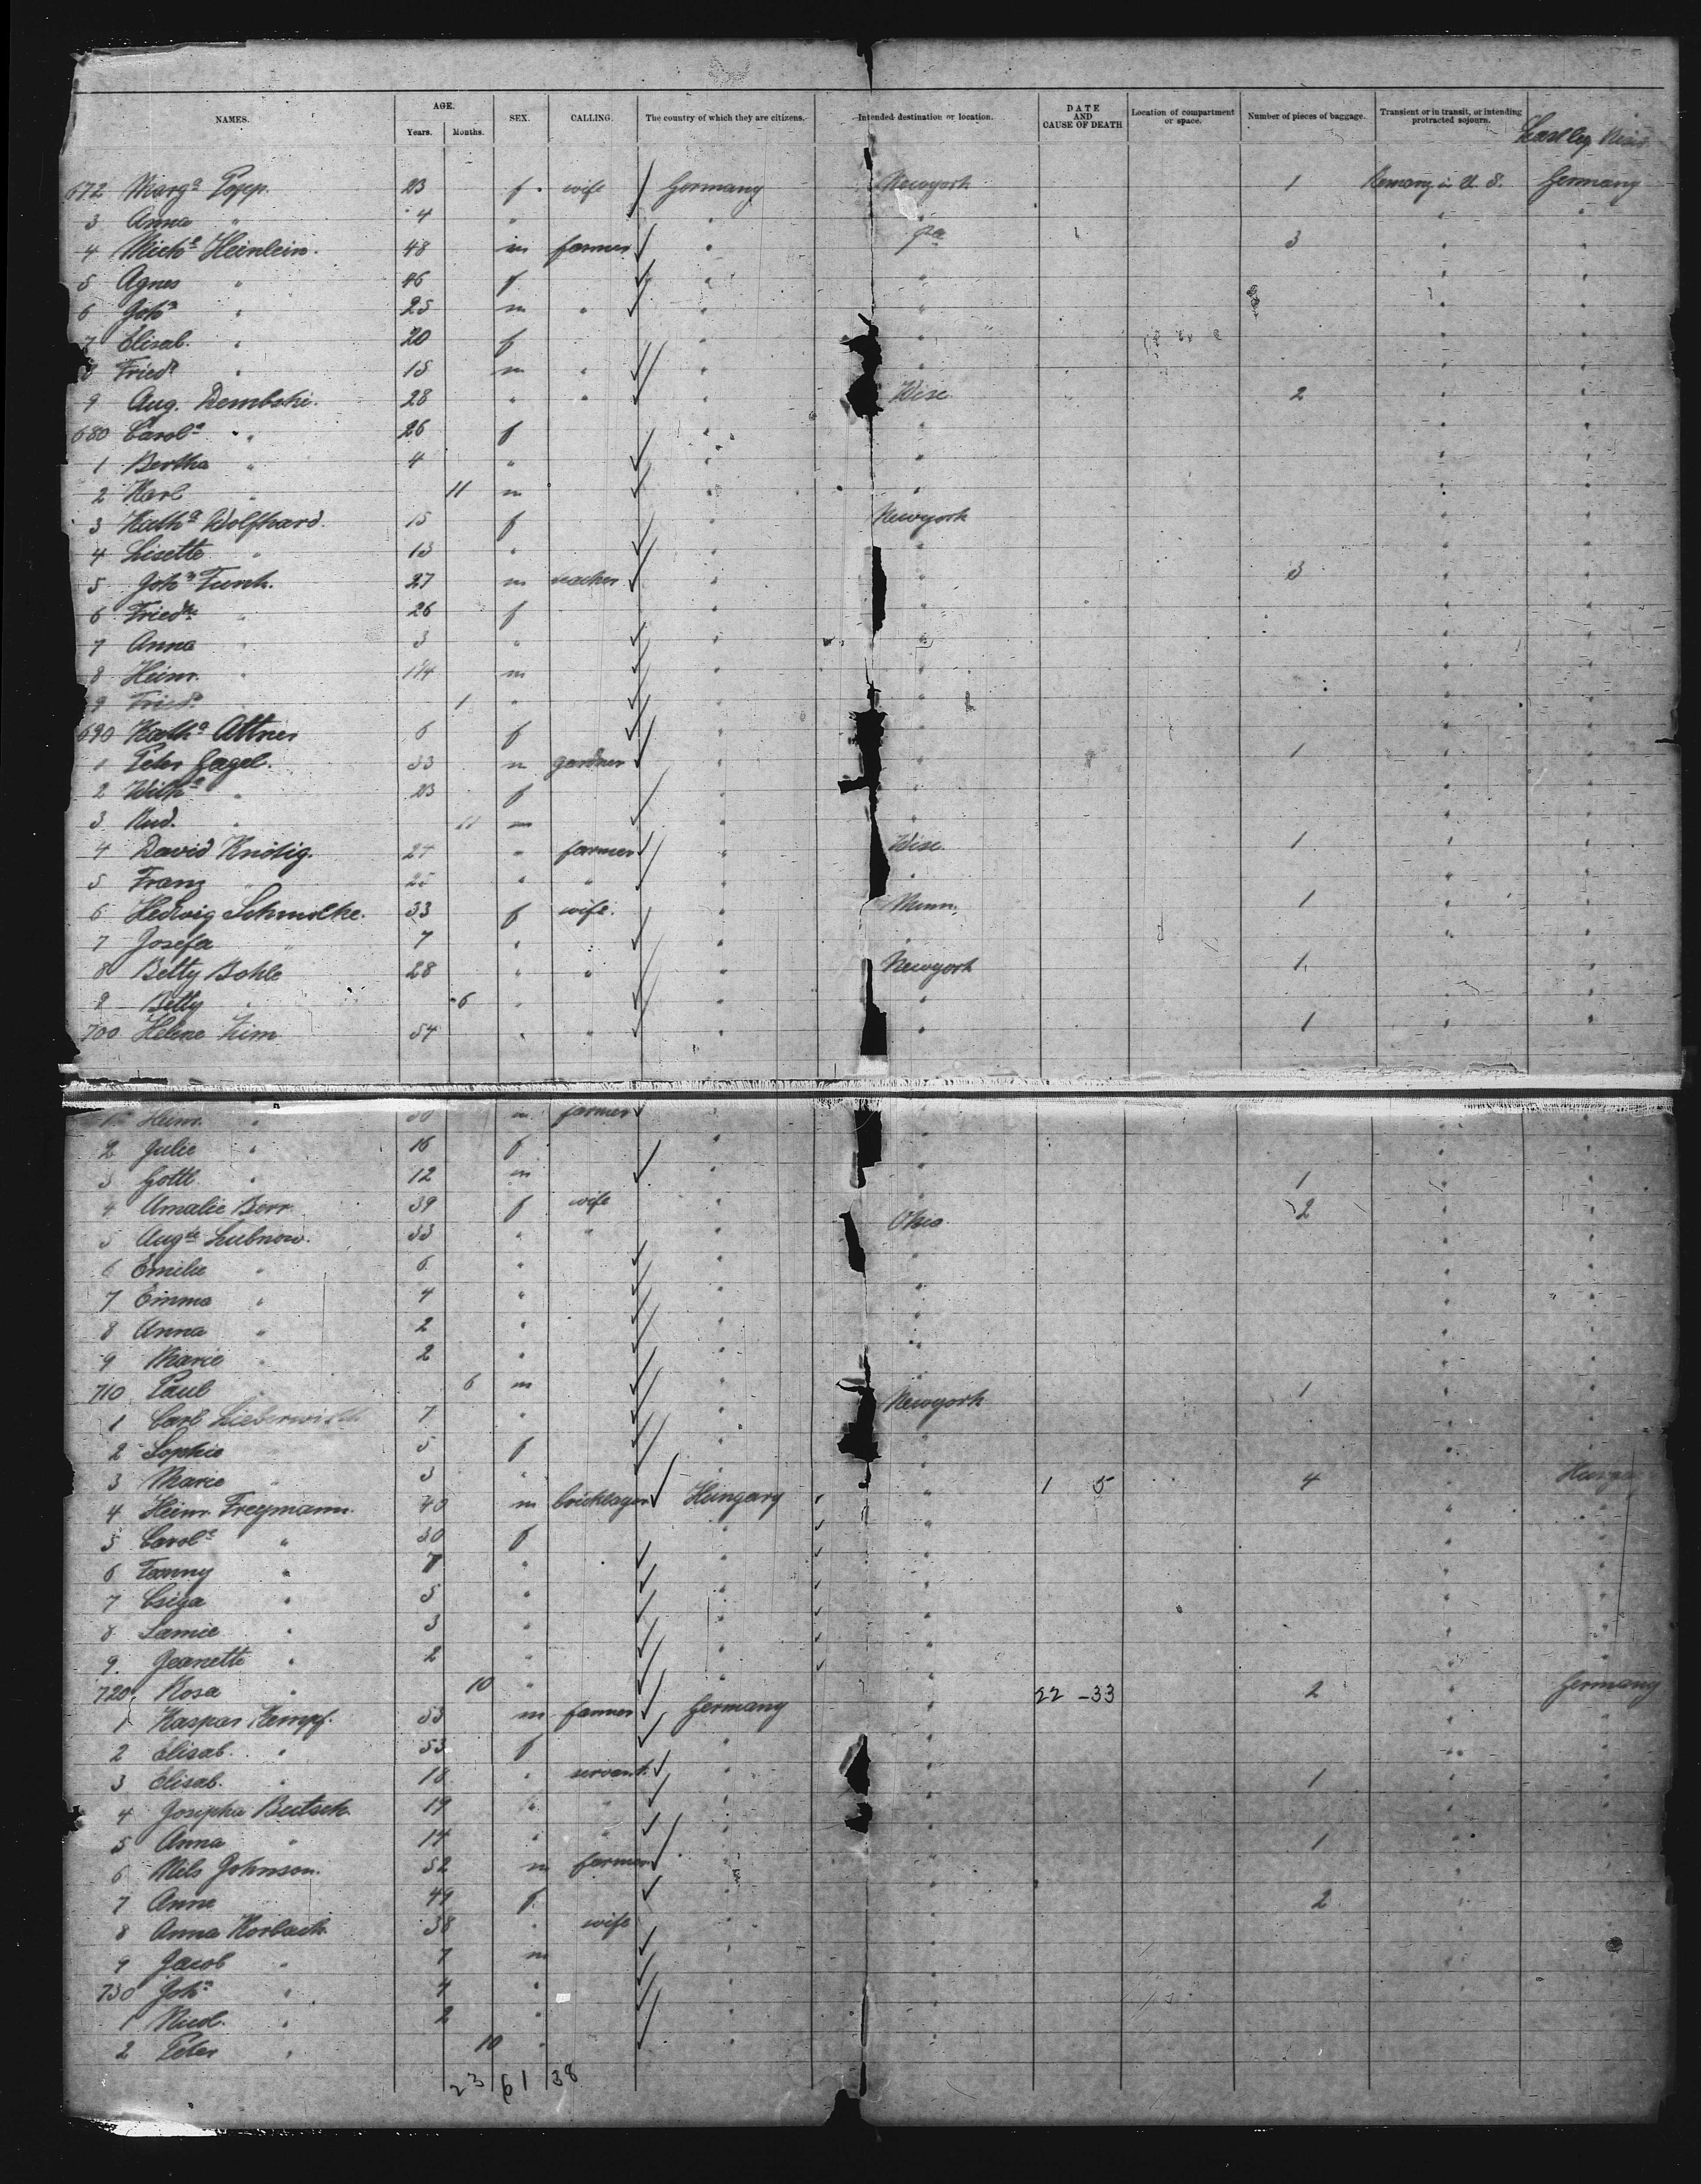 NAMES. AGE. Years. Months. SEX. CALLING. The country of which they are citizens. Intended destination or location. DATE AND CAUSE OF DEATH Location of compartment or space. Number of pieces of baggage. Transient or in transit, or intending protracted sojourn.
672 Marga Popp. 23 f. wife Germany Newyork 1 U. S. Germany
3 Anna " 4 "
4 Micha Heinlein. 48 m farmer " Pa 3 " "
5 Agnes " 46 f " " " "
6 Johs " 25 m " " " " "
7 Elisab. " 20 f " " " "
8 Friedr " 15 m " " " "
9 Aug. Dembski. 28 " " " Wisc. 2 " "
680 Carola " 26 f " " " "
1 Bertha " 4 " " " " "
2 Karl " 11 m " " " "
3 Katha Wolfhard. 15 f " Newyork " "
4 Lisette " 13 " " " " "
5 Johs Funk. 27 m teacher " " 3 " "
6 Friedke " 26 f " " " "
7 Anna " 3 " " " " "
8 Heinr. " m " " " "
9 Friedr 1 " " " " "
690 Katha Attner 6 f " " "
1 Peter Gagel. 33 m gardner " 1 " "
2 Wilha " 23 f " " " "
3 Rud. " 11 m " " "
4 David Knötig. 24 " farmer " Wisc. 1 " "
5 Franz " 25 " " " " " "
6 Hedwig Schmolke. 33 f wife. " Minn. 1 " "
7 Josefa " 7 " " " " "
8 Betty Bohle 28 " " " Newyork 1 " "
9 Betty " 6 " " " " "
700 Helene Zim 54 " " " " 1 " "
1 Heinr. " m farmer " " " "
2 Julie " 16 f " " " "
3 Gottl. " 12 m " " 1 " "
4 Amalie Berr 39 f wife " " 2 " "
5 Augte Lubnow. 33 " " " Ohio. " "
6 Emilie " 6 " " " " "
7 Emma " 4 " " " " "
8 Anna " 2 " " " " "
9 Marie " 2 " " " " "
710 Paul " 6 m " " 1 " "
1 Carl 7 " " Newyork " "
2 Sophie 5 f " " " "
3 Marie " 3 " " " "
4 Heinr. Freymann. 40 m bricklayer Hungary " 1 5 4 "
5 Carola " 30 f " " " "
6 Fanny " 7 " " " " "
7 Csiga " 5 " " " " "
8 Samie " 3 " " " " "
9. Jeanette " 2 " " " " "
720 Rosa " 10 " " " " "
1 Kaspar Kempf. 53 m farmer Germany " 22 - 33 2 " Germany
2 Elisab. " 53 f " " "
3 Elisab. " 18 " servant " 1 " "
4 Josepha Beitsch. 19 " " " " "
5 Anna " 14 " " " " 1 " "
6 Nils Johnson. 52 m farmer " " " "
7 Anne 49 f " " 2 " "
8 Anna Horbach. 38 " wife " " " "
9 Jacob " 7 m " " " "
730 Johs " 4 " " " " "
1 Nicol. " 2 " " " " "
2 Peter " 10 " " " " "
23 61 38